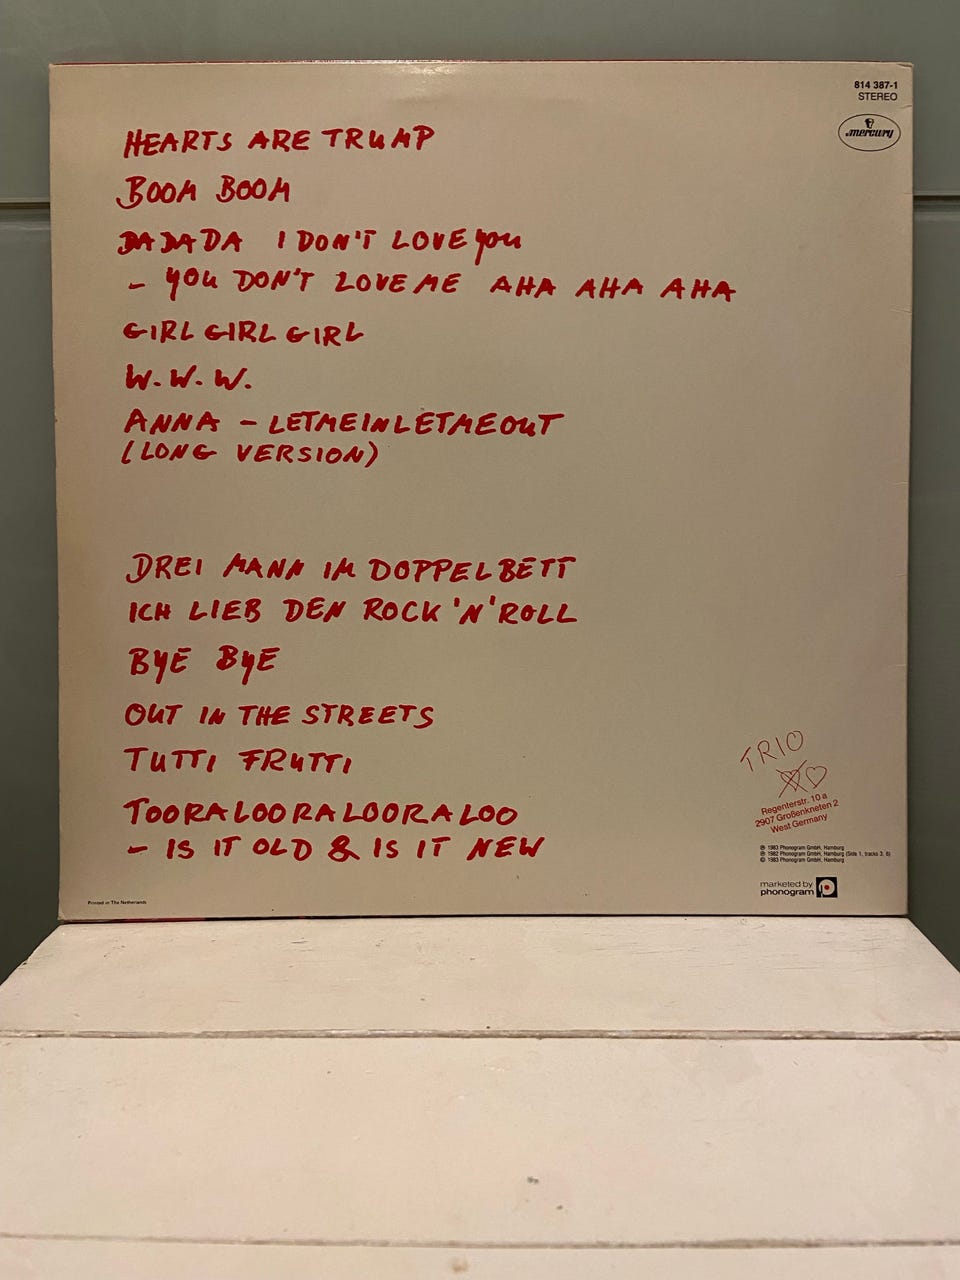 814 387-1
STEREO
mercury
HEARTS ARE TRUMP
BOOM BOOM
DA DA DA I DON'T LOVE you
- you DON'T LOVE ME AHA AHA AHA
GIRL GIRL GIRL
W. W. W.
ANNA - LETMEINLETMEOUT
(LONG VERSION)
DREI MANN IM DOPPELBETT
ICH LIEB DEN ROCK 'N' ROLL
BYE BYE
OUT IN THE STREETS
TUTTI FRUTTI
TOORALOORALOORALOO
- IS IT OLD & IS IT NEW
TRIO
Regenterstr. 10 a
2907 Großenkneten 2
West Germany
℗ 1983 Phonogram GmbH, Hamburg
℗ 1982 Phonogram GmbH, Hamburg (Side 1, tracks 3, 6)
© 1983 Phonogram GmbH, Hamburg
marketed by
phonogram
Printed in The Netherlands